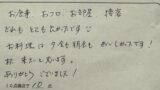 お食事、おフロ、お部屋、接客
どれも とても良かったです◡̈
お料理は夕食も朝食も おいしかったです!
秋 来たいと思います。
ありがとうございました!
10点満点で 10点